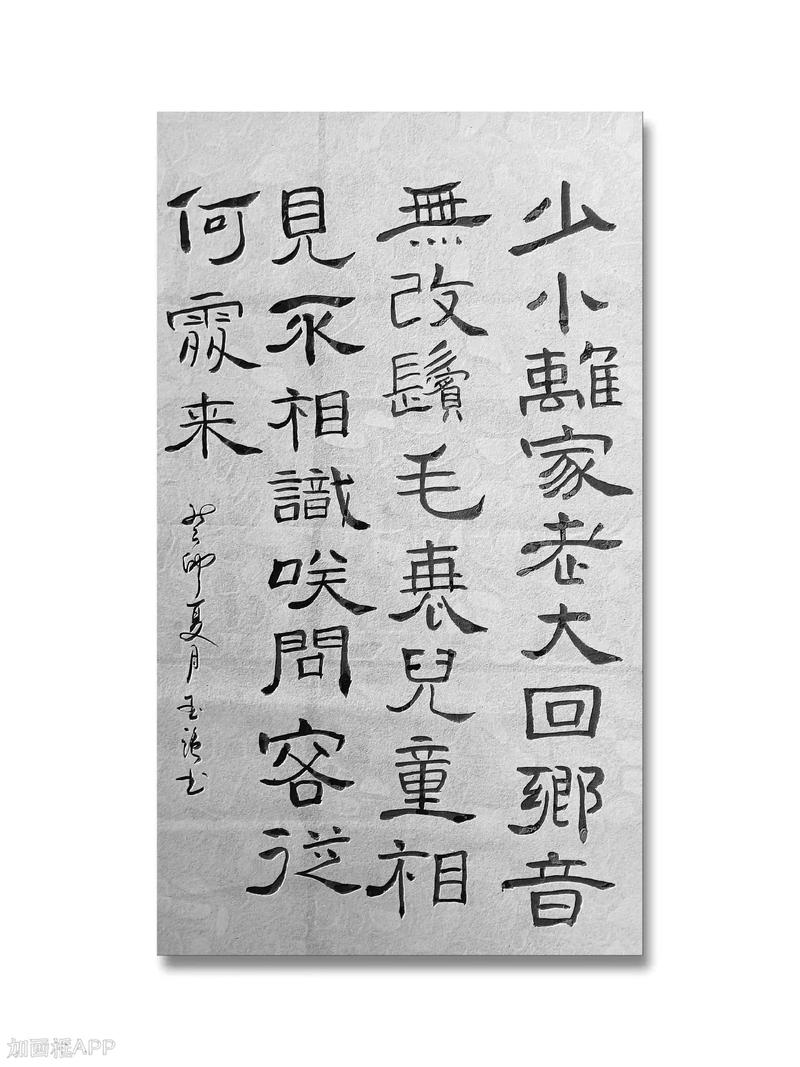 少小離家老大回鄉音
無改鬢毛衰兒童相
見不相識咲問客從
何處来
癸卯夏月玉語书
加画框APP